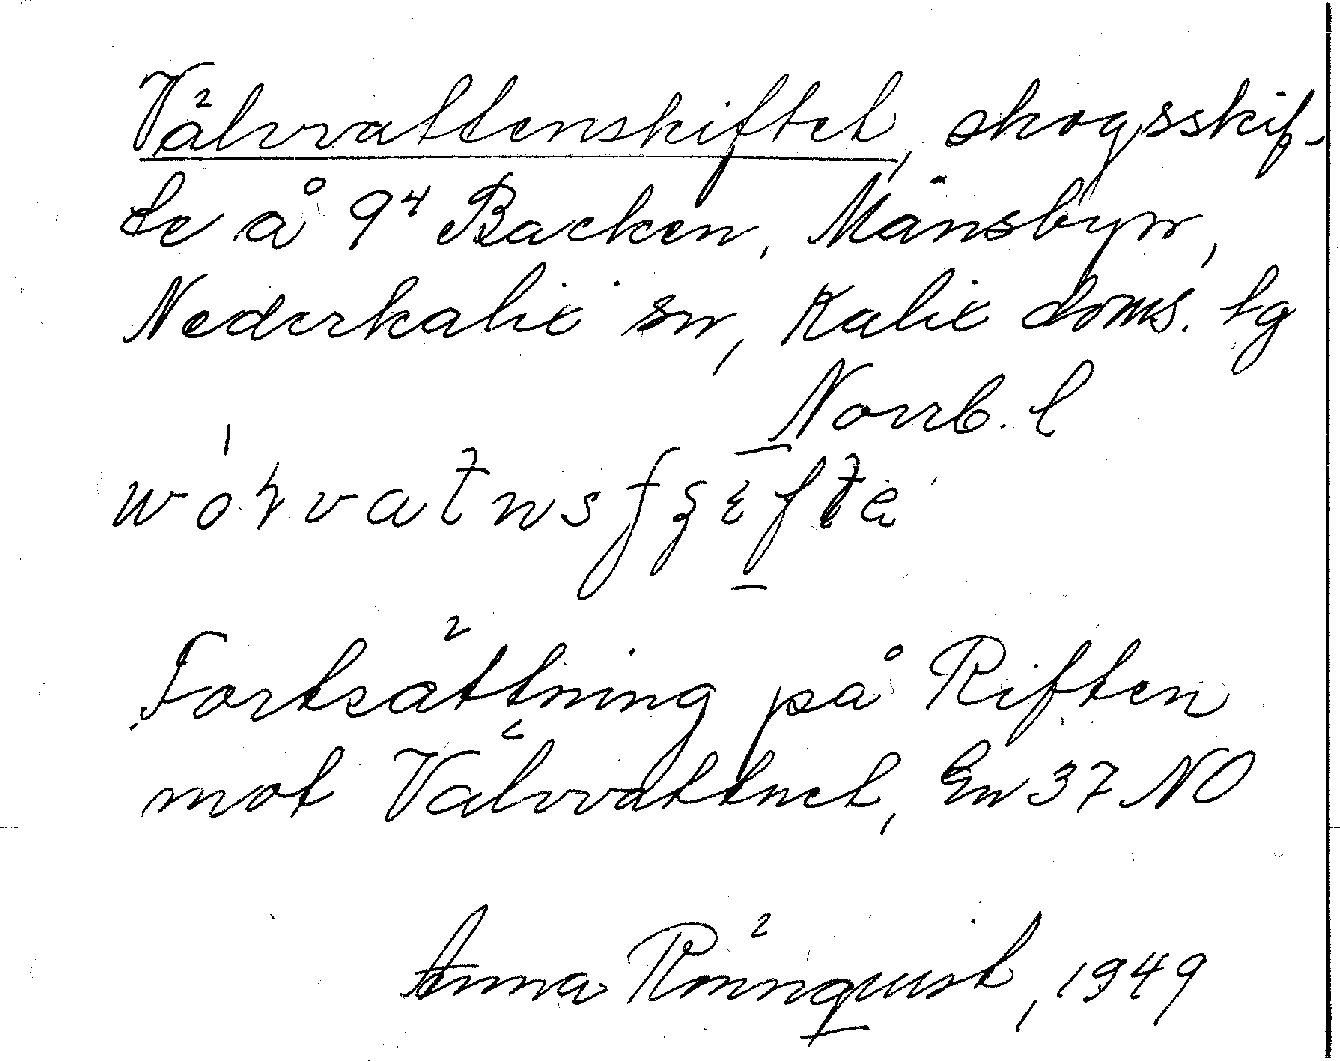 Välvvattenskiftet, skogsskif-
te å 9⁴ Backen, Månsbyn,
Nederkalix sn, Kalix doms. tg
Norrb. l
Fortsättning på Riften
mot Välvvattnet, En 37 NO
Anna Rönnquist, 1949